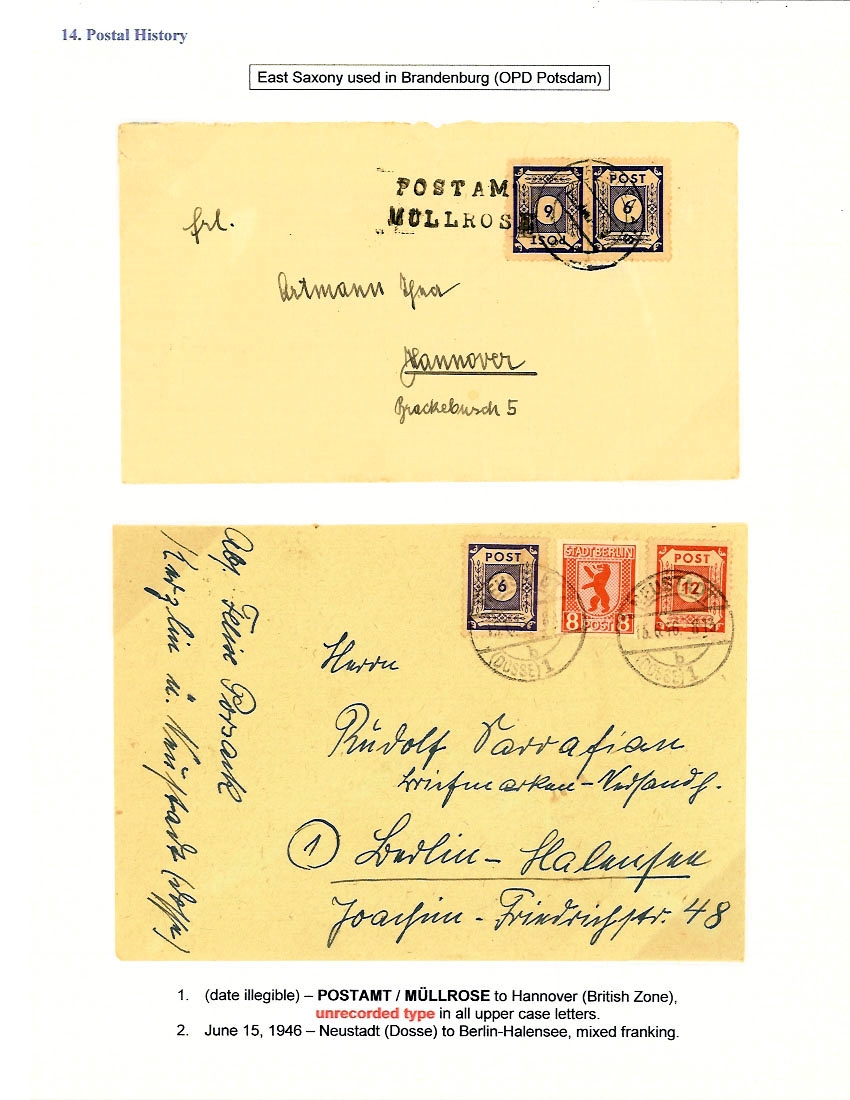 14. Postal History
East Saxony used in Brandenburg (OPD Potsdam)
POSTAM
MÜLLROSE
POST
6
POST
6
Frl.
Artmann Thea
Hannover
Brackebusch 5
POST
6
STADT BERLIN
8 POST 8
POST
12
NEUSTADT
15.6.46
b
(DOSSE) 1
b
(DOSSE) 1
Abs. Felix
Neustadt (Dosse)
Herrn
Rudolf Sarrafian
Briefmarken-Versandh.
1 Berlin-Halensee
Joachim-Friedrichstr. 48
1. (date illegible) – POSTAMT / MÜLLROSE to Hannover (British Zone),
unrecorded type in all upper case letters.
2. June 15, 1946 – Neustadt (Dosse) to Berlin-Halensee, mixed franking.